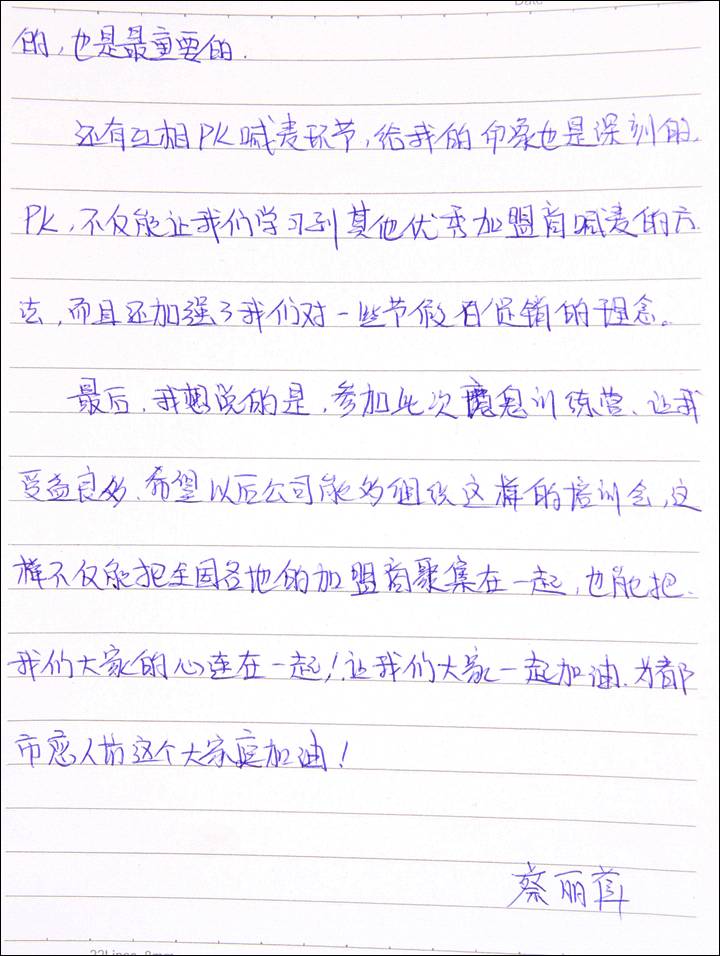 Date
的,也是最重要的.
还有互相PK喊麦环节,给我的印象也是深刻的.
PK,不仅能让我们学习到其他优秀加盟商喊麦的方
法,而且还加强了我们对一些节假日促销的理念。
最后,我想说的是,参加此次魔鬼训练营、让我
受益良多.希望以后公司能多组织这样的培训会,这
样不仅能把全国各地的加盟商聚集在一起,也能把.
我们大家的心连在一起!让我们大家一起加油.为都
市恋人坊这个大家庭加油!
蔡丽